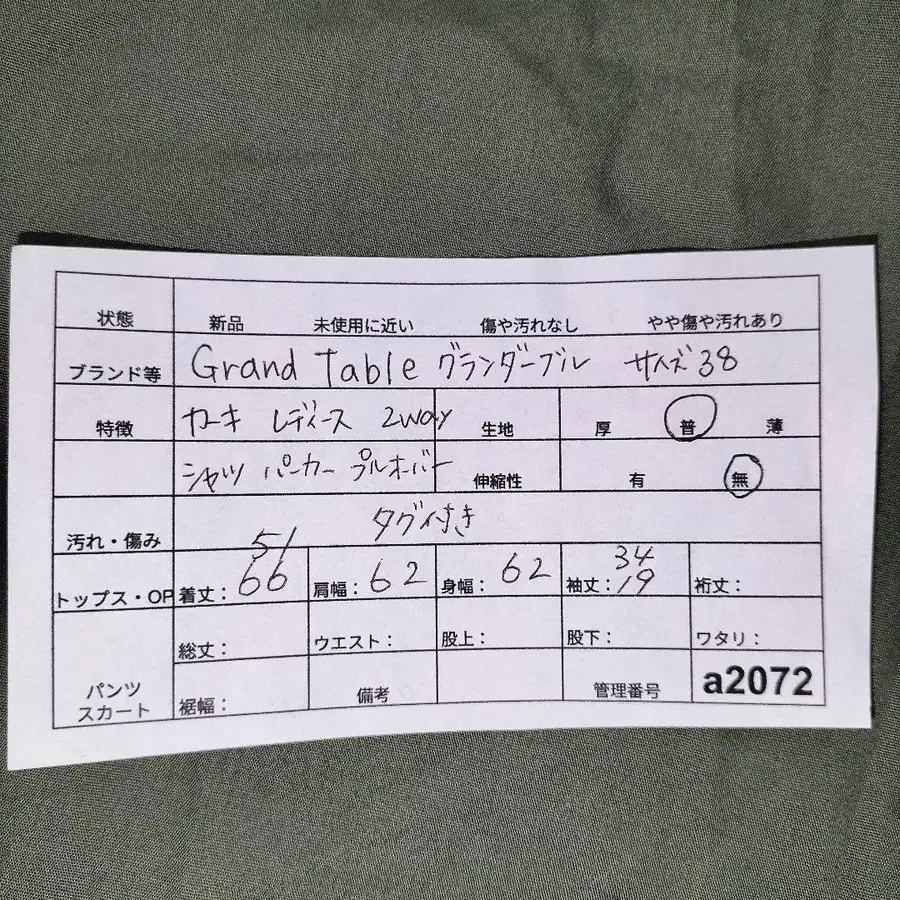 状態 新品 未使用に近い 傷や汚れなし やや傷や汚れあり
ブランド等 Grand Table グランダーブル サイズ38
特徴 カーキ レディース 2way 生地 厚 普 薄
シャツ パーカー プルオーバー 伸縮性 有 無
汚れ・傷み タグ付き
51 34
トップス・OP 着丈：66 肩幅：62 身幅：62 袖丈：19 裄丈：
総丈： ウエスト： 股上： 股下： ワタリ：
パンツ
スカート 裾幅： 備考 管理番号 a2072